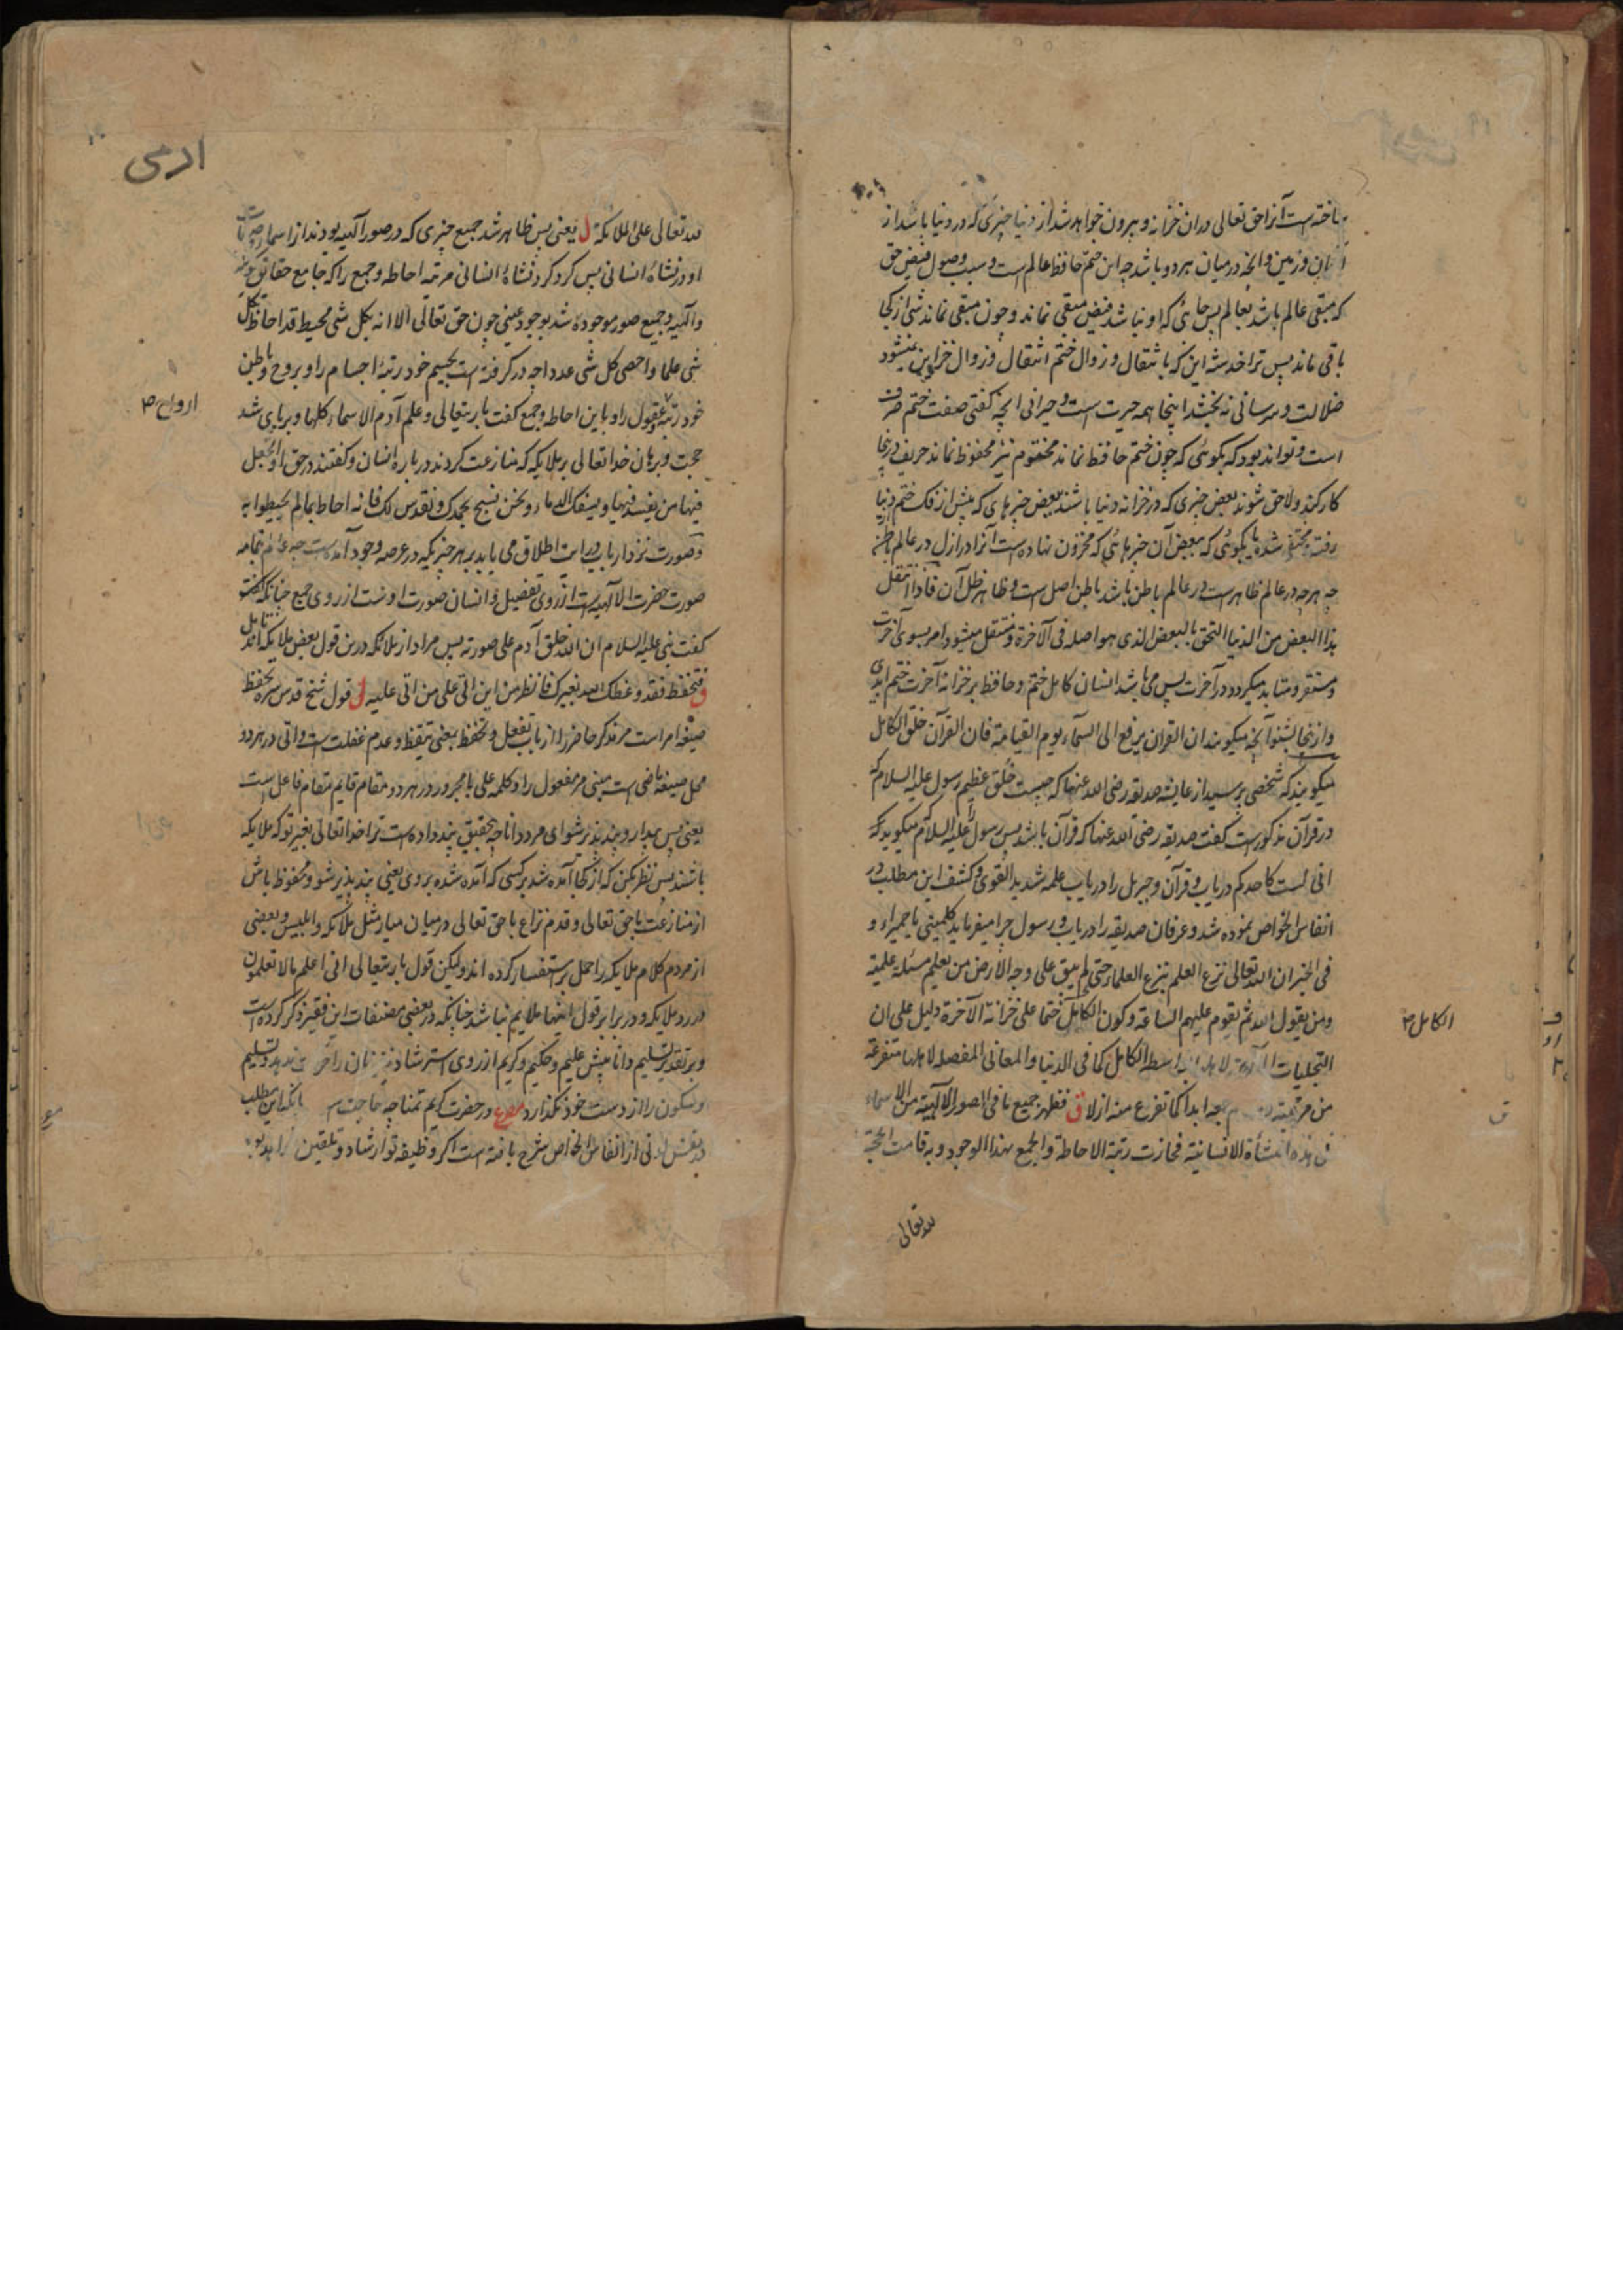 ساخته است آنرا حق تعالی دران خزانه و بیرون خواهد شد از دنیا چیزی که در دنیا باشد از
آسمان و زمین و آنچه در میان هر دو باشد چه این ختم حافظ عالم است و سبب وصول فیض حق
که مبقی عالم باشد بعالم پس جائی که او نباشد فیض مبقی نماند و چون مبقی نماند شی از کجا
باقی ماند پس ترا خدشه این که بانتقال و زوال ختم انتقال و زوال خزاین نمیشود
ضلالت و مرسانی نه بخشد اینجا همه حیرت است و حیرانی آنچه گفتی صفت ختم صرف
است و تواند بود که بگوئی که چون ختم حافظ نماند مختوم نیز محفوظ نماند حریف درینجا
کار کند و لاحق شوند بعض چیزی که در خزانه دنیا باشند ببعض چیزهای که پیش از فک ختم دنیا
رفته و مختفی شده یا بگوئی که ببعض آن چیزهائی که مخزون نهاده است آنرا در ازل در عالم باطن
چه هر چه در عالم ظاهر است در عالم باطن باشد باطن اصل است و ظاهر ظل آن فاذا انتقل
هذا البعض من الدنیا التحق بالبعض الذی هو اصله فی الآخرة و منتقل میشود امر بسوی آخرت
و مستقر و متابد میگردد در آخرت پس می باشد انسان کامل ختم و حافظ بر خزانه آخرت ختم ابدی
و ازینجا بشنو آنچه میگویند ان القرآن یرفع الی السماء یوم القیامة فان القرآن خلق الکامل
میگویند که شخصی پرسید از عایشه صدیقه رضی الله عنها که چیست خلق عظیم رسول علیه السلام که
در قرآن مذکور است گفت صدیقه رضی الله عنها که قرآن باشد پس رسول علیه السلام میگوید که
انی لست کاحدکم دریاب و قرآن و جبریل را دریاب علمه شدید القوی و کشف این مطلب در
انفاس الخواص نموده شد و عرفان صدیقه را دریاب و رسول چرا میفرماید کلمینی یا حمیراء و
فی الخبر ان الله تعالی نزع العلم ینزع العلماء حتی لم یبق علی وجه الارض من یعلم مسئلة علمیة
و من یقول الله ثم تقوم علیهم الساعة و کون الکامل ختما علی خزانة الآخرة دلیل علی ان
التجلیات لاهل بواسطة الکامل کما فی الدنیا و المعانی المفصلة لاهلها متفرعة
من مرتبته ابدا کما تفرع منه ازلا ق فظهر جمیع ما فی الصور الآلهیة من الاسماء
فی هذه النشأة الانسانیة فحازت رتبة الاحاطة و الجمع بهذا الوجود و به قامت الحجة
لله تعالی
الکامل ص
ادمی
لله تعالی علی الملائکة ل یعنی پس ظاهر شد جمیع چیزی که در صور آلهیه بودند از اسماء و صفات
او در نشاة انسانی پس گرد کرد نشاة انسانی مرتبه احاطه و جمع را که جامع حقائق کونیه
و آلهیه و جمیع صور موجوده شد بوجود عینی چون حق تعالی الا انه بکل شی محیط قد احاط بکل
شی علما و احصی کل شی عددا چه در گرفته است بجسم خود رتبة اجسام را و بروح و باطن
خود رتبه عقول را و باین احاطه و جمع گفت باریتعالی و علم آدم الاسماء کلها و برپای شد
حجت و برهان خدا تعالی بر ملایکه که منازعت کردند درباره انسان و گفتند در حق او اتجعل
فیها من یفسد فیها و یسفک الدماء و نحن نسبح بحمدک و نقدس لک فانه احاط بما لم یحیطوا به
و صورت نزد ارباب درایت اطلاق می یابد بر هر چیزیکه در عرصه وجود آمده است چه عالم بتمامه
صورت حضرت الآلهیه است از روی تفصیل و انسان صورت اوست از روی جمع چنانکه
گفت نبی علیه السلام ان الله خلق آدم علی صورته پس مراد از ملائکه درین قول بعض ملایکه اند
ق فتحفظ فقد وعظک الله بغیرک فانظر من این اتی علی من اتی علیه ل قول شیخ قدس سره تحفظ
صیغه امر است مر مذکر حاضر را از باب تفعل و تحفظ بمعنی تیقظ و عدم غفلت است و اتی در هر دو
محل صیغه ماضی است مبنی مر مفعول را و کلمه علی با مجرور در هر دو مقام قایم مقام فاعل است
یعنی پس بیدار و پند پذیر شو ای مرد دانا چه بتحقیق پند داده است ترا خدا تعالی بغیر تو که ملایکه
باشند پس نظر بکن که از کجا آمده شد بر کسی که آمده شده بروی یعنی پند پذیر شو و محفوظ باش
از منازعت با حق تعالی و قدم نزاع با حق تعالی در میان میار مثل ملائکه و ابلیس و بعضی
از مردم کلام ملایکه را حمل بر استفسار کرده اند ولیکن قول باریتعالی انی اعلم ما لا تعلمون
در رد ملایکه و در برابر قول اینها ملایم نباشد چنانکه در بعضی مصنفات این فقیر ذکر کرده است
و بر تقدیر تسلیم دانا پیش علیم و حکیم و کریم از روی استرشاد نیز زبان را و تسلیم
و سکون را از دست خود نگذارد مصرع در حضرت کریم تمنا چه حاجت است این مطلب
در نفس اولی از انفاس الخواص شرح یافته است اگر وظیفه تو ارشاد و تلقین
ارواح ص